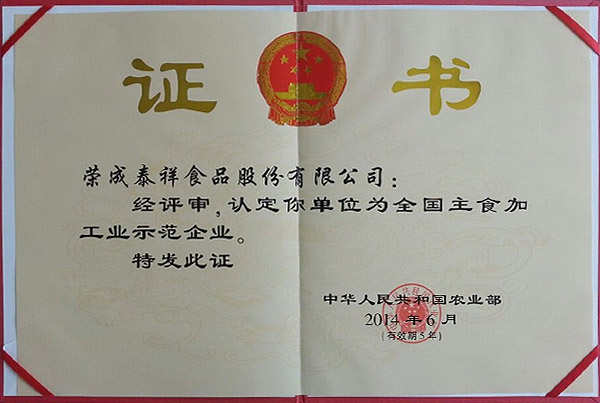 证书
荣成泰祥食品股份有限公司：
经评审，认定你单位为全国主食加
工业示范企业。
特发此证
中华人民共和国农业部
2014年6月
(有效期5年)